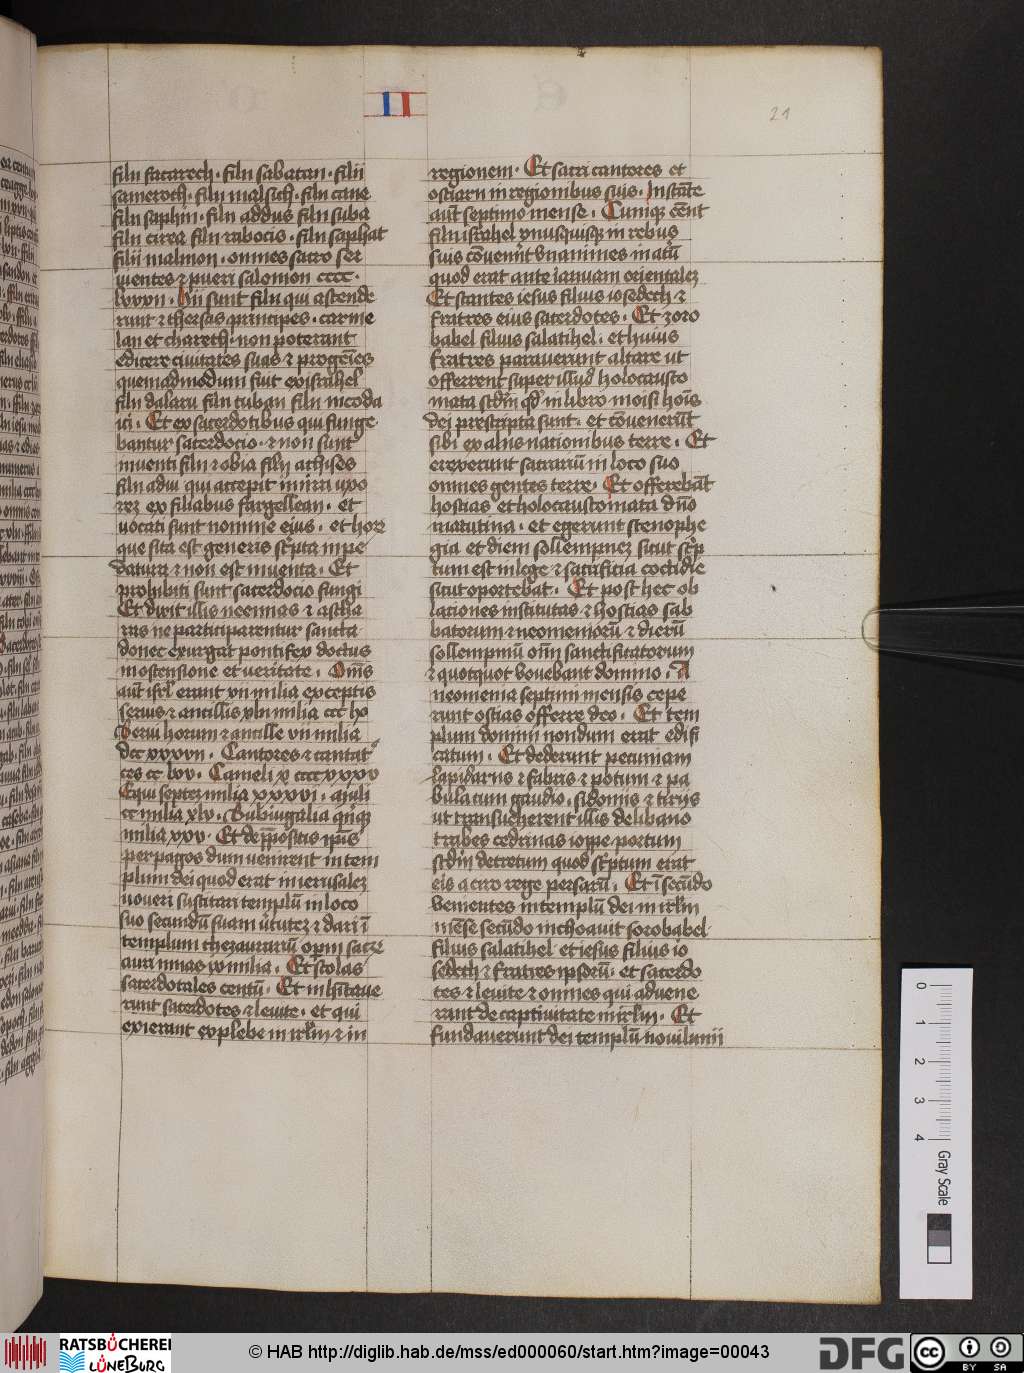 II
21
filii sacarech · filii sabatan · filii
sameroth · filii malsith · filii cane
filii saphin · filii addus filii suba
filii cirea filii rabocis · filii saphat
filii malmon · omnes sacro ser
uientes ⁊ pueri salomon cccc·
lxxxii · hii sunt filii qui ascende
runt ⁊ thersas principes · carme
lan et chareth · non poterant
edicere ciuitates suas ⁊ progēies
quemadmodum fuit ex israhel
filii dalaru filii tuban filii nicoda
ici · Et ex sacerdotibus qui funge
bantur sacerdocio · ⁊ non sunt
inuenti filii ⁊ obia filii achises
filii adin qui accepit
rez ex filiabus fargellean · et
vocati sunt nomine eius · et hor
que sita est generis scpta in pe
datura ⁊ non est inuenta · Et
prohibiti sunt sacerdocio fungi
Et dixit illis neemias ⁊ astha
ras ne participarentur sancta
donec exurgat pontifex doctus
in ostensione et veritate · Oms̄
aut̄ isrl̄ erant xii milia exceptis
seruis ⁊ ancillis xlii milia ccc ho
Serui horum ⁊ ancille vii milia
dcc xxxvii · Cantores ⁊ cantat
ces cc lxv · Cameli x cccc xxxv
Equi septez milia xxxvi · muli
cc milia xlv · Subiugalia qnqꝫ
milia xxv · Et de p̄positis ipis̄
per pagos dum venirent in tem
plum dei quod erat in ierusalez
noueri suscitari templū in loco
suo secundū suam v̄tutez ⁊ dari ī
templum thezaurariū opm̄ sacrz
auri mnas xii milia · Et stolas
sacerdotales centū · Et inhitaue
runt sacerdotes ⁊ leuite · et qui
exierant ex plebe in irlm̄ ⁊ in
regionem · Et sacri cantores et
ostiarii in regionibus suis · Instāte
aut̄ septimo mense · Cumqꝫ eēnt
filii israhel vnusquisqꝫ in rebus
suis cōuenert̄ vnanimes in atrū
quod erat ante ianuam orientalez
Et stantes iesus filius iosedech ⁊
fratres eius sacerdotes · Et zoro
babel filius salatihel · et huius
fratres parauerunt altare ut
offerrent super illud holocausto
mata scdm̄ qd̄ in libro moisi hoīs
dei prescripta sunt · et cōuenerūt
sibi ex aliis nationibus terre · Et
erexerunt sacrariū in loco suo
omnes gentes terre · Et offerebāt
hostias et holocaustomata dn̄o
matutina · et egerunt scenophe
gia et diem sollempnez sicut scp
tum est in lege ⁊ sacrificia cotidie
sicut oportebat · Et post hec ob
lationes institutas ⁊ hostias sab
batorum ⁊ neomeniorū ⁊ dierū
sollempniū om̄ sanctificatorum
⁊ quotquot vouebant domino · A
neomenia septimi mensis cepe
runt ostias offerre deo · Et tem
plum domini nondum erat edifi
catum · Et dederunt pecuniam
lapidariis ⁊ fabris ⁊ potum ⁊ pa
bula cum gaudio · sidoniis ⁊ tiriis
ut transueherent illis de libano
trabes cedrinas ioppe portum
scdm̄ decretum quod scptum erat
eis a ciro rege persarū · Et ī secūdo
venientes in templū dei in irlm̄
mēse secūdo inchoauit sorobabel
filius salatihel et iesus filius io
sedech ⁊ fratres ipsorū · et sacerdo
tes ⁊ leuite ⁊ omnes qui aduene
rant de captiuitate in irlm̄ · Et
fundauerunt dei templū nouilunii
0 1 2 3 4
Gray Scale
RATSBÜCHEREI
LÜNEBURG
© HAB http://diglib.hab.de/mss/ed000060/start.htm?image=00043
DFG
cc BY SA